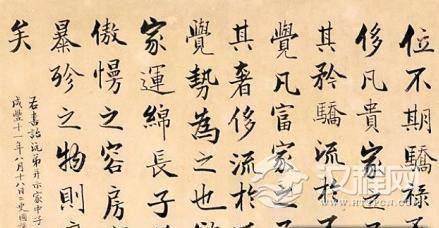 位不期驕祿不
侈凡貴家之子
其矜驕流於不
覺凡富家之子
其奢侈流於不
覺勢為之也欲
家運綿長子
傲慢之容房
暴殄之物則
矣
右書詒沅弟并示家中子
咸豐十一年八月十八日二更國藩
汉程网